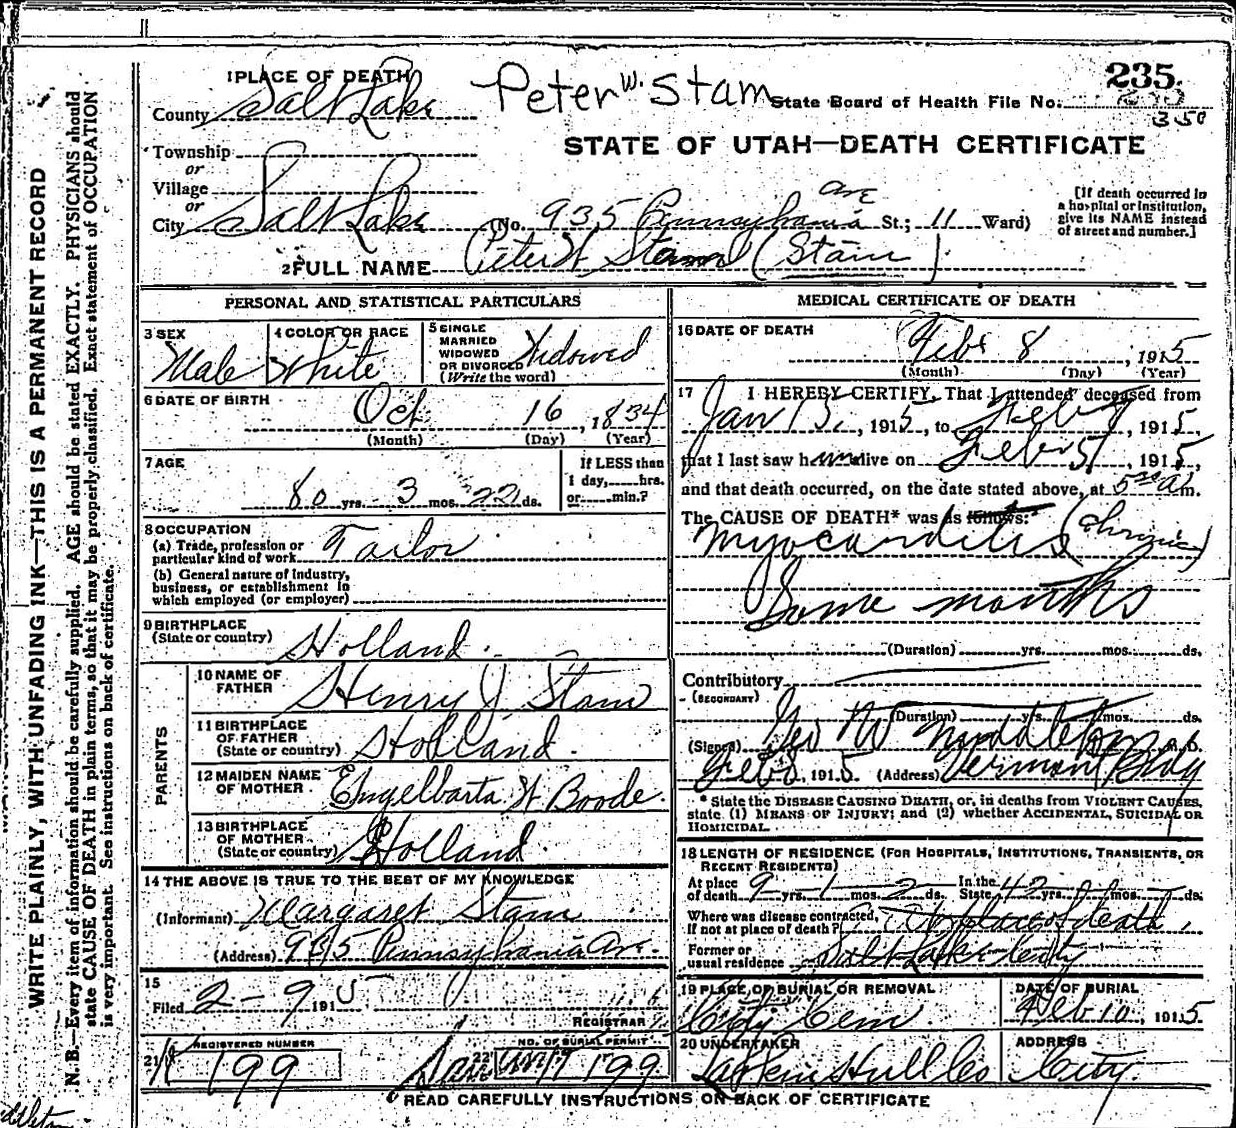 235.
1 PLACE OF DEATH Peter W. Stam State Board of Health File No.
County Salt Lake 350
STATE OF UTAH—DEATH CERTIFICATE
Township
or
Village
or
City Salt Lake (No. 935 Pennsylvania Ave St.; 11 Ward)
[If death occurred in
a hospital or institution,
give its NAME instead
of street and number.]
2 FULL NAME Peter W Stam (Stam)
PERSONAL AND STATISTICAL PARTICULARS
3 SEX Male
4 COLOR OR RACE White
5 SINGLE
MARRIED
WIDOWED
OR DIVORCED Widowed
(Write the word)
6 DATE OF BIRTH Oct 16, 1834
(Month) (Day) (Year)
7 AGE 80 yrs. 3 mos. 22 ds.
If LESS than
1 day, hrs.
or min.?
8 OCCUPATION
(a) Trade, profession or
particular kind of work Tailor
(b) General nature of industry,
business, or establishment in
which employed (or employer)
9 BIRTHPLACE
(State or country) Holland.
PARENTS
10 NAME OF
FATHER Henry J Stam
11 BIRTHPLACE
OF FATHER
(State or country) Holland.
12 MAIDEN NAME
OF MOTHER Engelbarta W Boode.
13 BIRTHPLACE
OF MOTHER
(State or country) Holland.
14 THE ABOVE IS TRUE TO THE BEST OF MY KNOWLEDGE
(Informant) Margaret Stam
(Address) 935 Pennsylvania Ave.
15
Filed 2-9 1915
REGISTRAR
21 REGISTERED NUMBER
199
22 NO. OF BURIAL PERMIT
199
MEDICAL CERTIFICATE OF DEATH
16 DATE OF DEATH
Feb. 8, 1915
(Month) (Day) (Year)
17 I HEREBY CERTIFY, That I attended deceased from
Jan 13, 1915, to Feb 8, 1915,
that I last saw him alive on Feb 5, 1915,
and that death occurred, on the date stated above, at 5 30 a m.
The CAUSE OF DEATH* was as follows:
Myocarditis (chronic)
Some months
(Duration) yrs. mos. ds.
Contributory
(SECONDARY)
(Duration) yrs. mos. ds.
(Signed) Geo W Middleton M. D.
Feb 8, 1915. (Address) Vermont Bldg
* State the DISEASE CAUSING DEATH, or, in deaths from VIOLENT CAUSES,
state (1) MEANS OF INJURY; and (2) whether ACCIDENTAL, SUICIDAL OR
HOMICIDAL.
18 LENGTH OF RESIDENCE (FOR HOSPITALS, INSTITUTIONS, TRANSIENTS, OR
RECENT RESIDENTS)
At place
of death 9 yrs. 1 mos. 2 ds. In the
State 42 yrs. mos. ds.
Where was disease contracted,
If not at place of death? At place of death.
Former or
usual residence Salt Lake City
19 PLACE OF BURIAL OR REMOVAL
City Cem.
DATE OF BURIAL
Feb 10, 1915
20 UNDERTAKER
Larkin Hull Co
ADDRESS
City.
READ CAREFULLY INSTRUCTIONS ON BACK OF CERTIFICATE
WRITE PLAINLY, WITH UNFADING INK—THIS IS A PERMANENT RECORD
N. B.—Every item of information should be carefully supplied. AGE should be stated EXACTLY. PHYSICIANS should
state CAUSE OF DEATH in plain terms, so that it may be properly classified. Exact statement of OCCUPATION
is very important. See instructions on back of certificate.